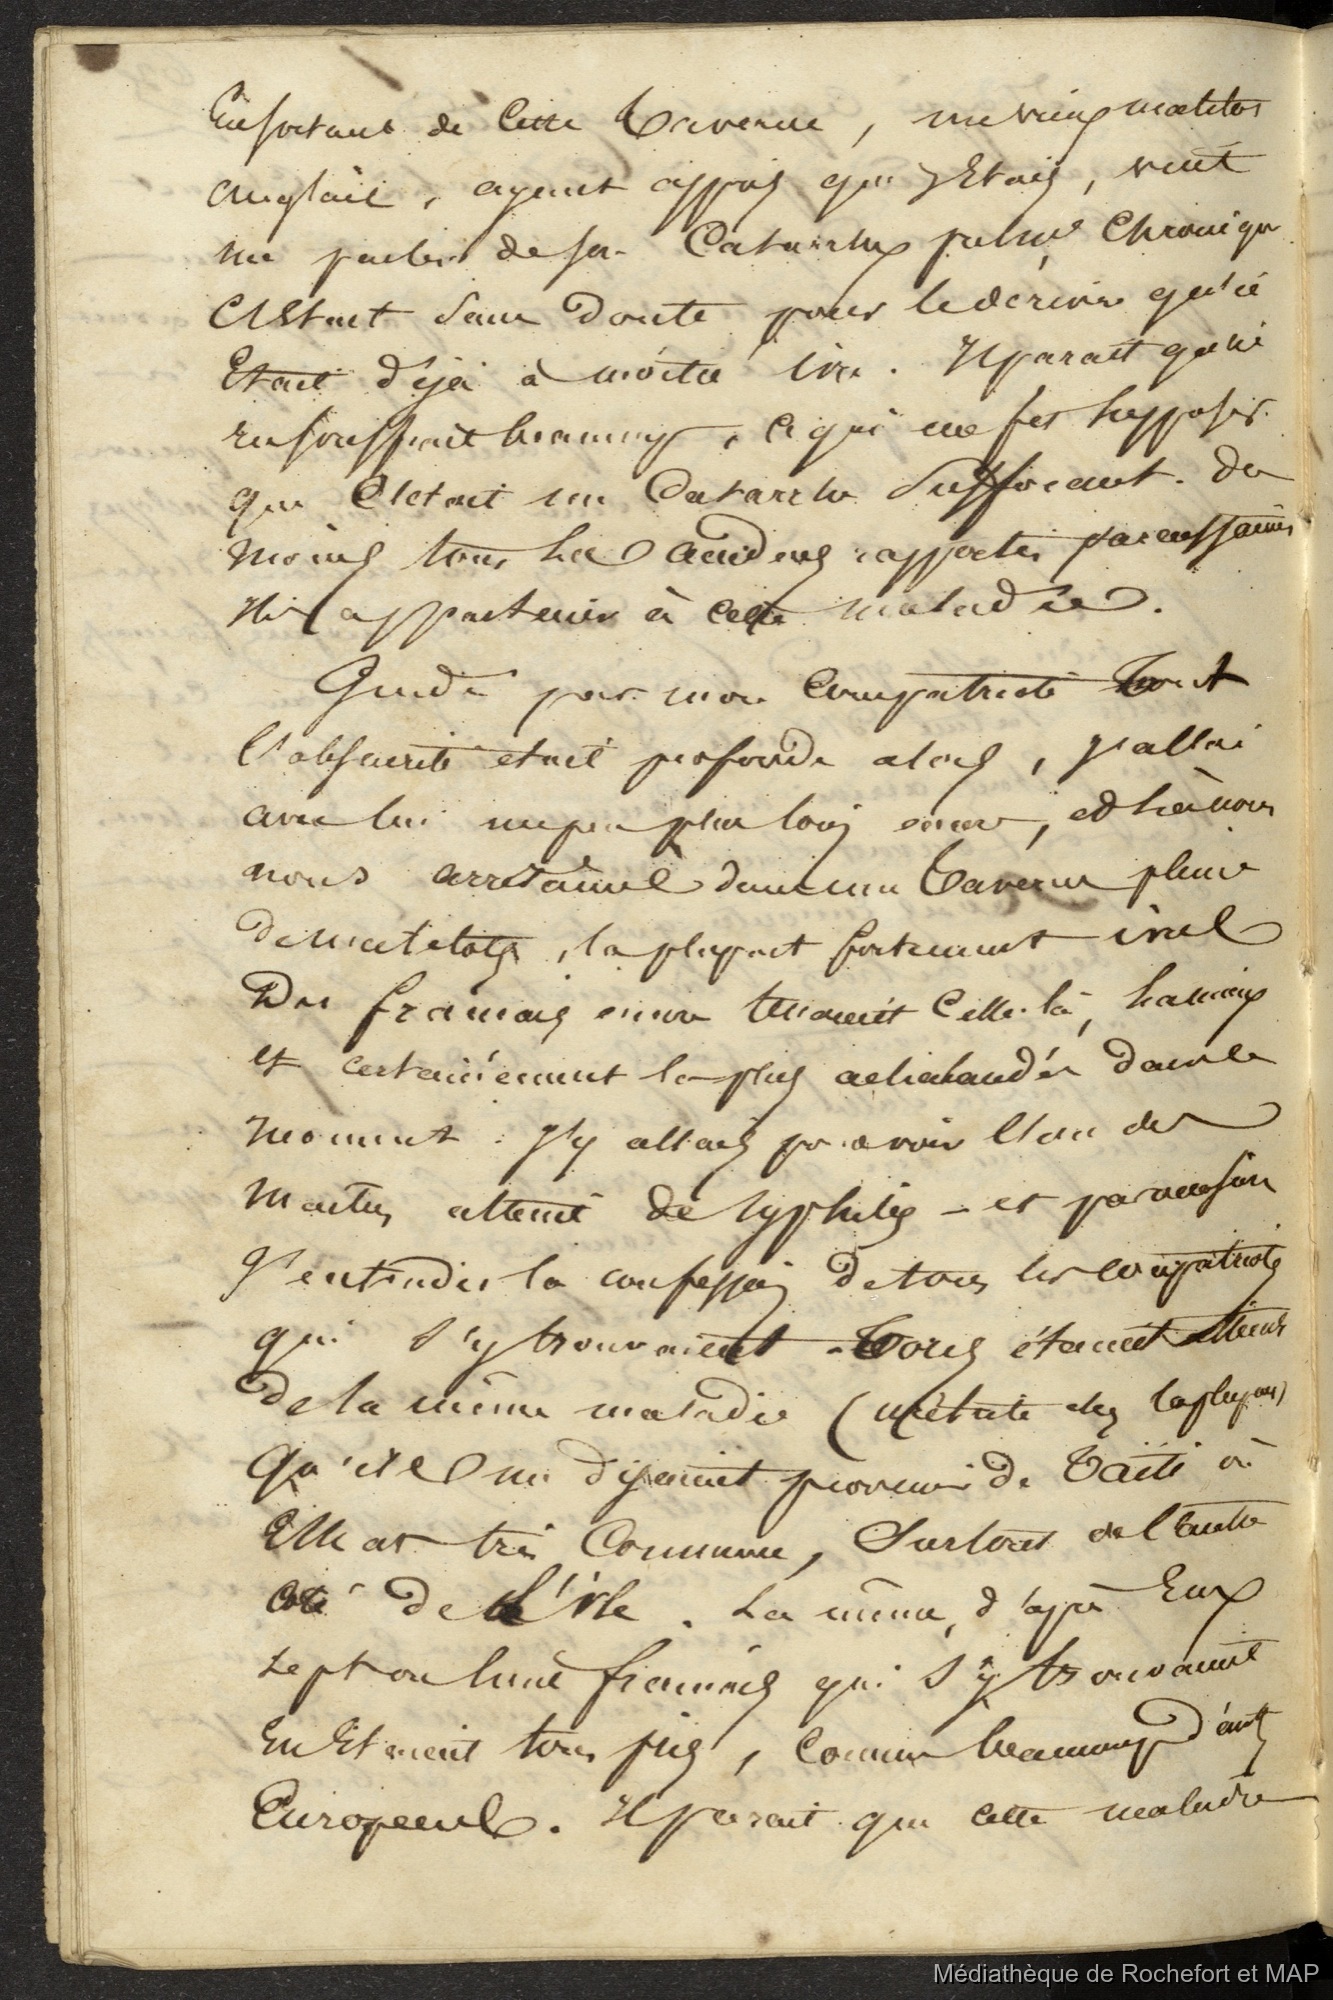 En sortant de cette taverne, un vieux matelot
anglais, ayant appris qui j'étais, vint
me parler de son Catarrhe pulm. Chronique
C'était sans doute pour le décrire qu'il
était déjà à moitié ivre. Il parait qu'il
en souffrait beaucoup, ce qui me fit supposer
que c'était un Catarrhe suffocant. Du
moins tous les accidens rapportés par
appartenir à cette maladie.
Guidé par mon compatriote dont
l'obscurité était profonde alors, j'allai
avec lui un peu plus loin encore, et là nous
nous arretâmes dans une taverne pleine
de matelots, la plupart fortement ivres
Des français encore tenaient celle-là, la mieux
et certainement la plus achalandée dans le
moment. J'y allais pr. voir l'un des
maitres atteint de syphilis - et par occasion
j'entendis la confession de tous les compatriotes
qui s'y trouvaient - Tous étaient atteints
de la même maladie (uréthrite chez la plupart)
qu'ils me disaient provenir de Taïti où
Elle est très Commune, surtout de l'autre
coté de l'île. La même, d'après Eux
sept ou huit français qui s'y trouvaient
En étaient tous pris, comme beaucoup d'autres
Européens. Il parait que cette maladie
Médiathèque de Rochefort et MAP